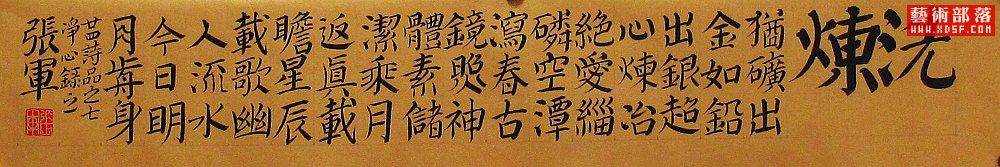 藝術部落
www.XDSF.com
洗煉
猶礦出
金如鉛
出銀超
心煉冶
絕愛緇
磷空潭
瀉春古
鏡照神
體素儲
潔乘月
返眞載
瞻星辰
載歌幽
人流水
今日明
月歬身
廿四詩品之七
淨心錄之一
張軍